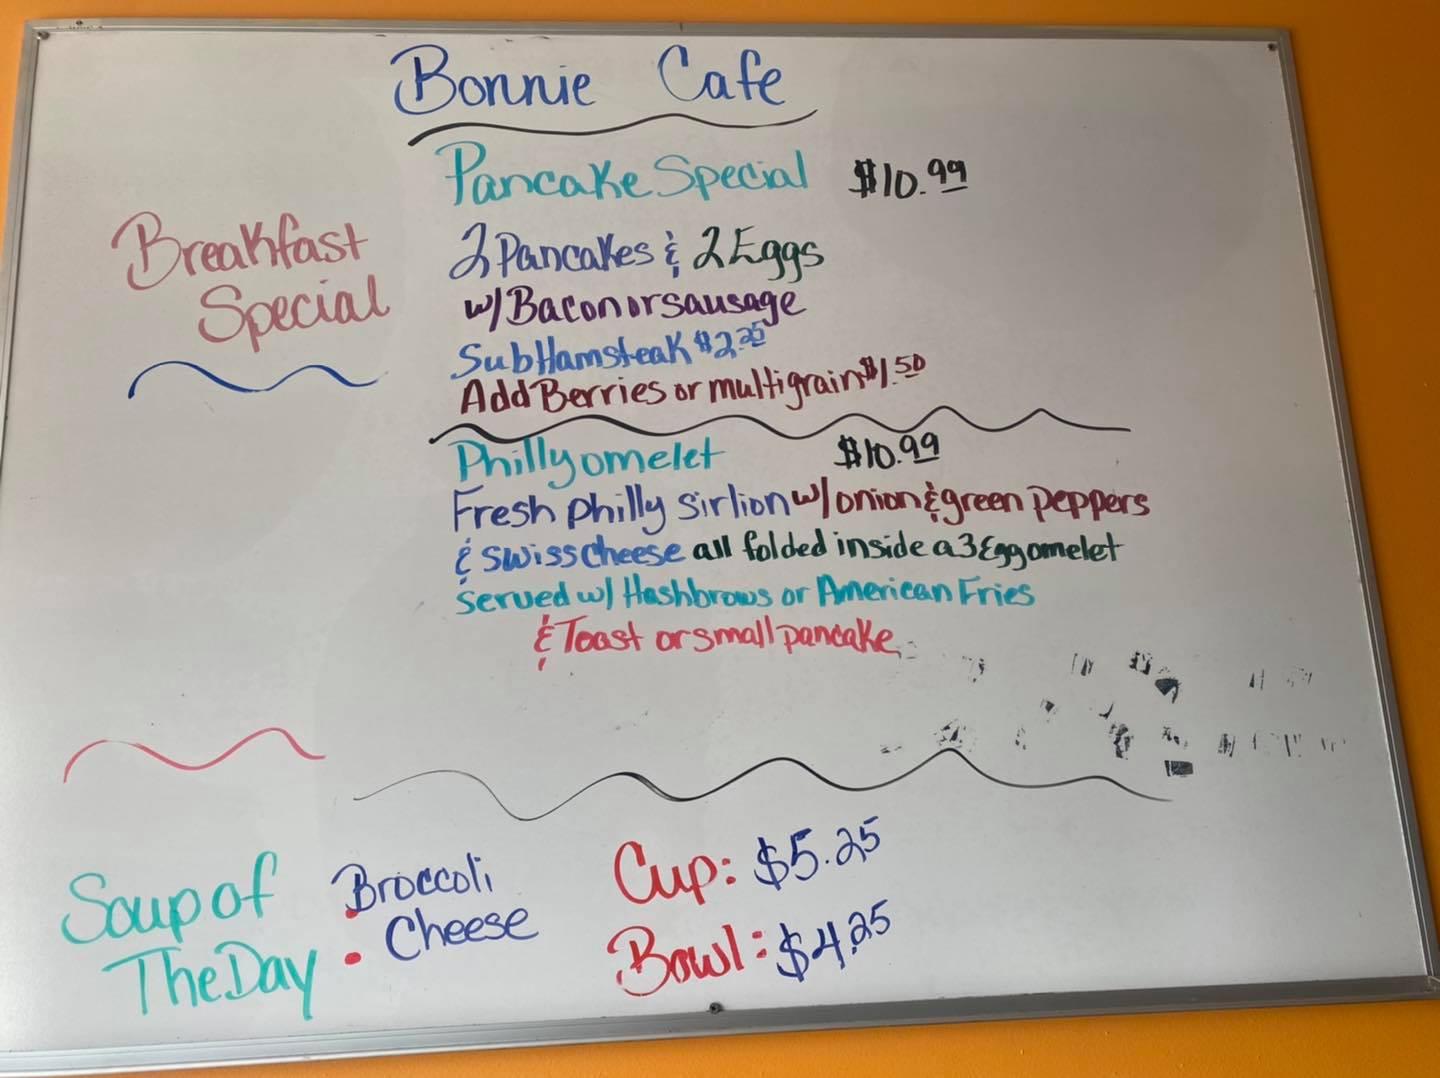 Bonnie Cafe
Breakfast
Special
Pancake Special $10.99
2 Pancakes & 2 Eggs
w/ Bacon or sausage
Sub Hamsteak $2.25
Add Berries or multigrain $1.50
Philly omelet $10.99
Fresh philly sirlion w/ onion & green peppers
& swiss cheese all folded inside a 3 Egg omelet
served w/ Hashbrows or American Fries
& Toast or small pancake
Soup of
The Day :
Broccoli
Cheese
Cup: $5.25
Bowl: $4.25